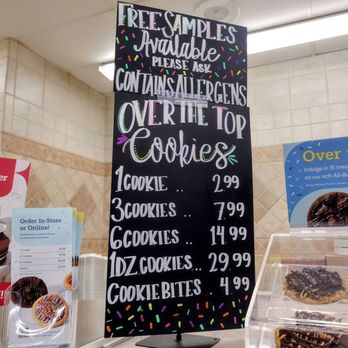 FREE SAMPLES
Available
PLEASE ASK
CONTAINS ALLERGENS
OVER THE TOP
Cookies
1 COOKIE .. 2.99
3 COOKIES .. 7.99
6 COOKIES .. 14.99
1DZ COOKIES .. 29.99
COOKIE BITES . 4.99
Order In-Store
or Online!
Over
Indulge in 15 irres
on our rich All-Bu